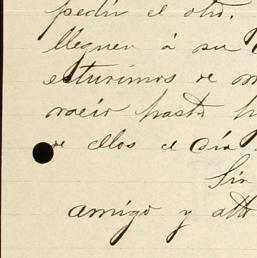 pedir el otro.
lleguen á su
estuvimos de
hasta
de ellos el dia
Sin
amigo y atto